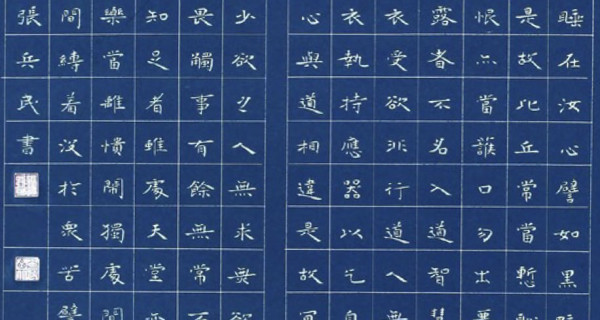 睡在汝心譬如黑
是故比丘常當慙
恨亦當護口勿出惡
露者不名入道智慧
衣受欲非行道人無
衣執持應器以乞自
心與道相違是故宜
少欲之人無求無欲
畏觸事有餘無常不
知足者雖處天堂亦
樂當離憒閙獨處閒
間縛着沒於衆苦譬
張兵民書